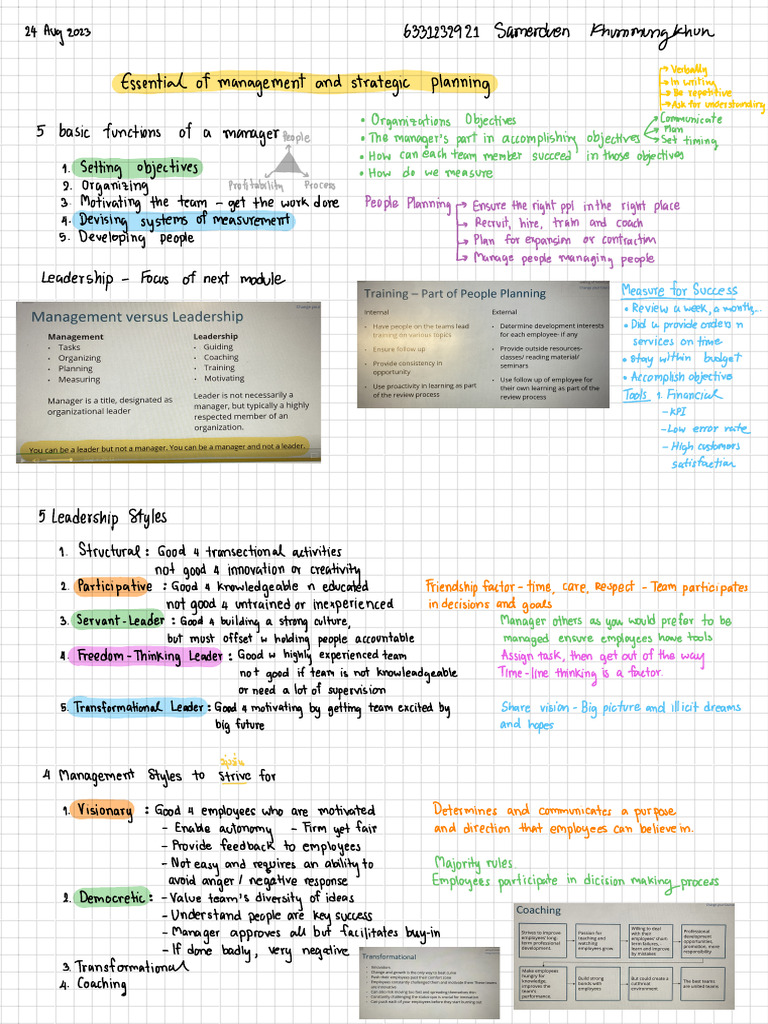 24 Aug 2023
6331232921 Samerduen Khummungkhun
Essential of management and strategic planning
5 basic functions of a manager
1. Setting objectives
2. Organizing
3. Motivating the team – get the work done
4. Devising systems of measurement
5. Developing people
People
Profitability
Process
• Organizations Objectives
• The manager's part in accomplishing objectives
• How can each team member succeed in those objectives
• How do we measure
Communicate
Plan
Set timing
Verbally
In writing
Be repetitive
Ask for understanding
People Planning
Ensure the right ppl in the right place
Recruit, hire, train and coach
Plan for expansion or contraction
Manage people managing people
Leadership – Focus of next module
Management versus Leadership
Management
• Tasks
• Organizing
• Planning
• Measuring
Manager is a title, designated as
organizational leader
Leadership
• Guiding
• Coaching
• Training
• Motivating
Leader is not necessarily a
manager, but typically a highly
respected member of an
organization.
You can be a leader but not a manager. You can be a manager and not a leader.
Training – Part of People Planning
Internal
• Have people on the teams lead
training on various topics
• Ensure follow up
• Provide consistency in
opportunity
• Use proactivity in learning as part
of the review process
External
• Determine development interests
for each employee- if any
• Provide outside resources-
classes/ reading material/
seminars
• Use follow up of employee for
their own learning as part of the
review process
Measure for Success
• Review a week, a month,...
• Did u provide orders n
services on time
• Stay within budget
• Accomplish objective
Tools 1. Financial
– KPI
– Low error rate
– High customers
satisfaction
5 Leadership Styles
1. Structural : Good 4 transectional activities
not good 4 innovation or creativity
2. Participative : Good 4 knowledgeable n educated
not good 4 untrained or inexperienced
Friendship factor – time, care, respect – Team participates
in decisions and goals
3. Servant-Leader : Good 4 building a strong culture,
but must offset w holding people accountable
Manager others as you would prefer to be
managed ensure employees have tools
4. Freedom-Thinking Leader : Good w highly experienced team
not good if team is not knowleadgeable
or need a lot of supervision
Assign task, then get out of the way
Time-line thinking is a factor.
5. Transformational Leader : Good 4 motivating by getting team excited by
big future
Share vision – Big picture and illicit dreams
and hopes
4 Management Styles to strive for
1. Visionary : Good 4 employees who are motivated
– Enable autonomy – Firm yet fair
– Provide feedback to employees
– Not easy and requires an ability to
avoid anger / negative response
Determines and communicates a purpose
and direction that employees can believe in.
2. Democretic : – Value team's diversity of ideas
– Understand people are key success
– Manager approves all but facilitates buy-in
– If done badly, very negative
Majority rules
Employees participate in dicision making process
3. Transformational
4. Coaching
Transformational
Coaching
Strives to improve
employees' long-
term professional
development.
Passion for
teaching and
watching
employees grow.
Willing to deal
with their
employees' short-
term failures, -
learn and improve
by mistakes
Professional
development
opportunities,
promotion, more
responsibility
Make employees
hungry for
knowledge,
improves the
team's
performance.
Build strong
bonds with
employees
But could create a
cutthroat
environment
The best teams
are united teams